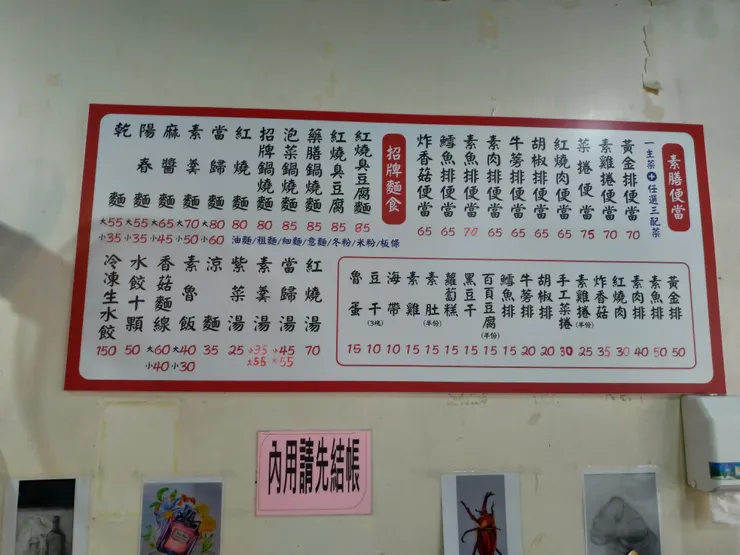 素膳便當
一主菜+任選三配菜
黃金排便當 70
素雞排便當 70
菜捲便當 75
紅燒肉便當 65
胡椒排便當 65
牛蒡排便當 65
素肉排便當 65
素魚排便當 70
鱈魚排便當 65
炸香菇便當 65
招牌麵食
紅燒臭豆腐麵 85
紅燒臭豆腐 85
藥膳鍋燒麵 85
泡菜鍋燒麵 85
招牌鍋燒麵 80
紅燒麵 80
當歸麵 大80 小60
素羹麵 大70 小50
麻醬麵 大65 小45
陽春麵 大55 小35
乾麵 大55 小35
油麵/粗麵/細麵/意麵/冬粉/米粉/板條
黃金排 50
素魚排 50
素肉排 40
紅燒肉 30
炸香菇 35
素雞捲(半份) 25
手工菜捲 30
胡椒排 20
牛蒡排 20
鱈魚排 15
百頁豆腐(半份) 15
黑豆干 15
蘿蔔糕 15
素肚(半份) 15
素雞 15
海帶 10
豆干(3塊) 10
魯蛋 15
紅燒湯 70
當歸湯 小45 大55
素羹湯 小35 大55
紫菜湯 25
涼麵 35
素魯飯 大40 小30
香菇麵線 大60 小40
水餃十顆 50
冷凍生水餃 150
內用請先結帳